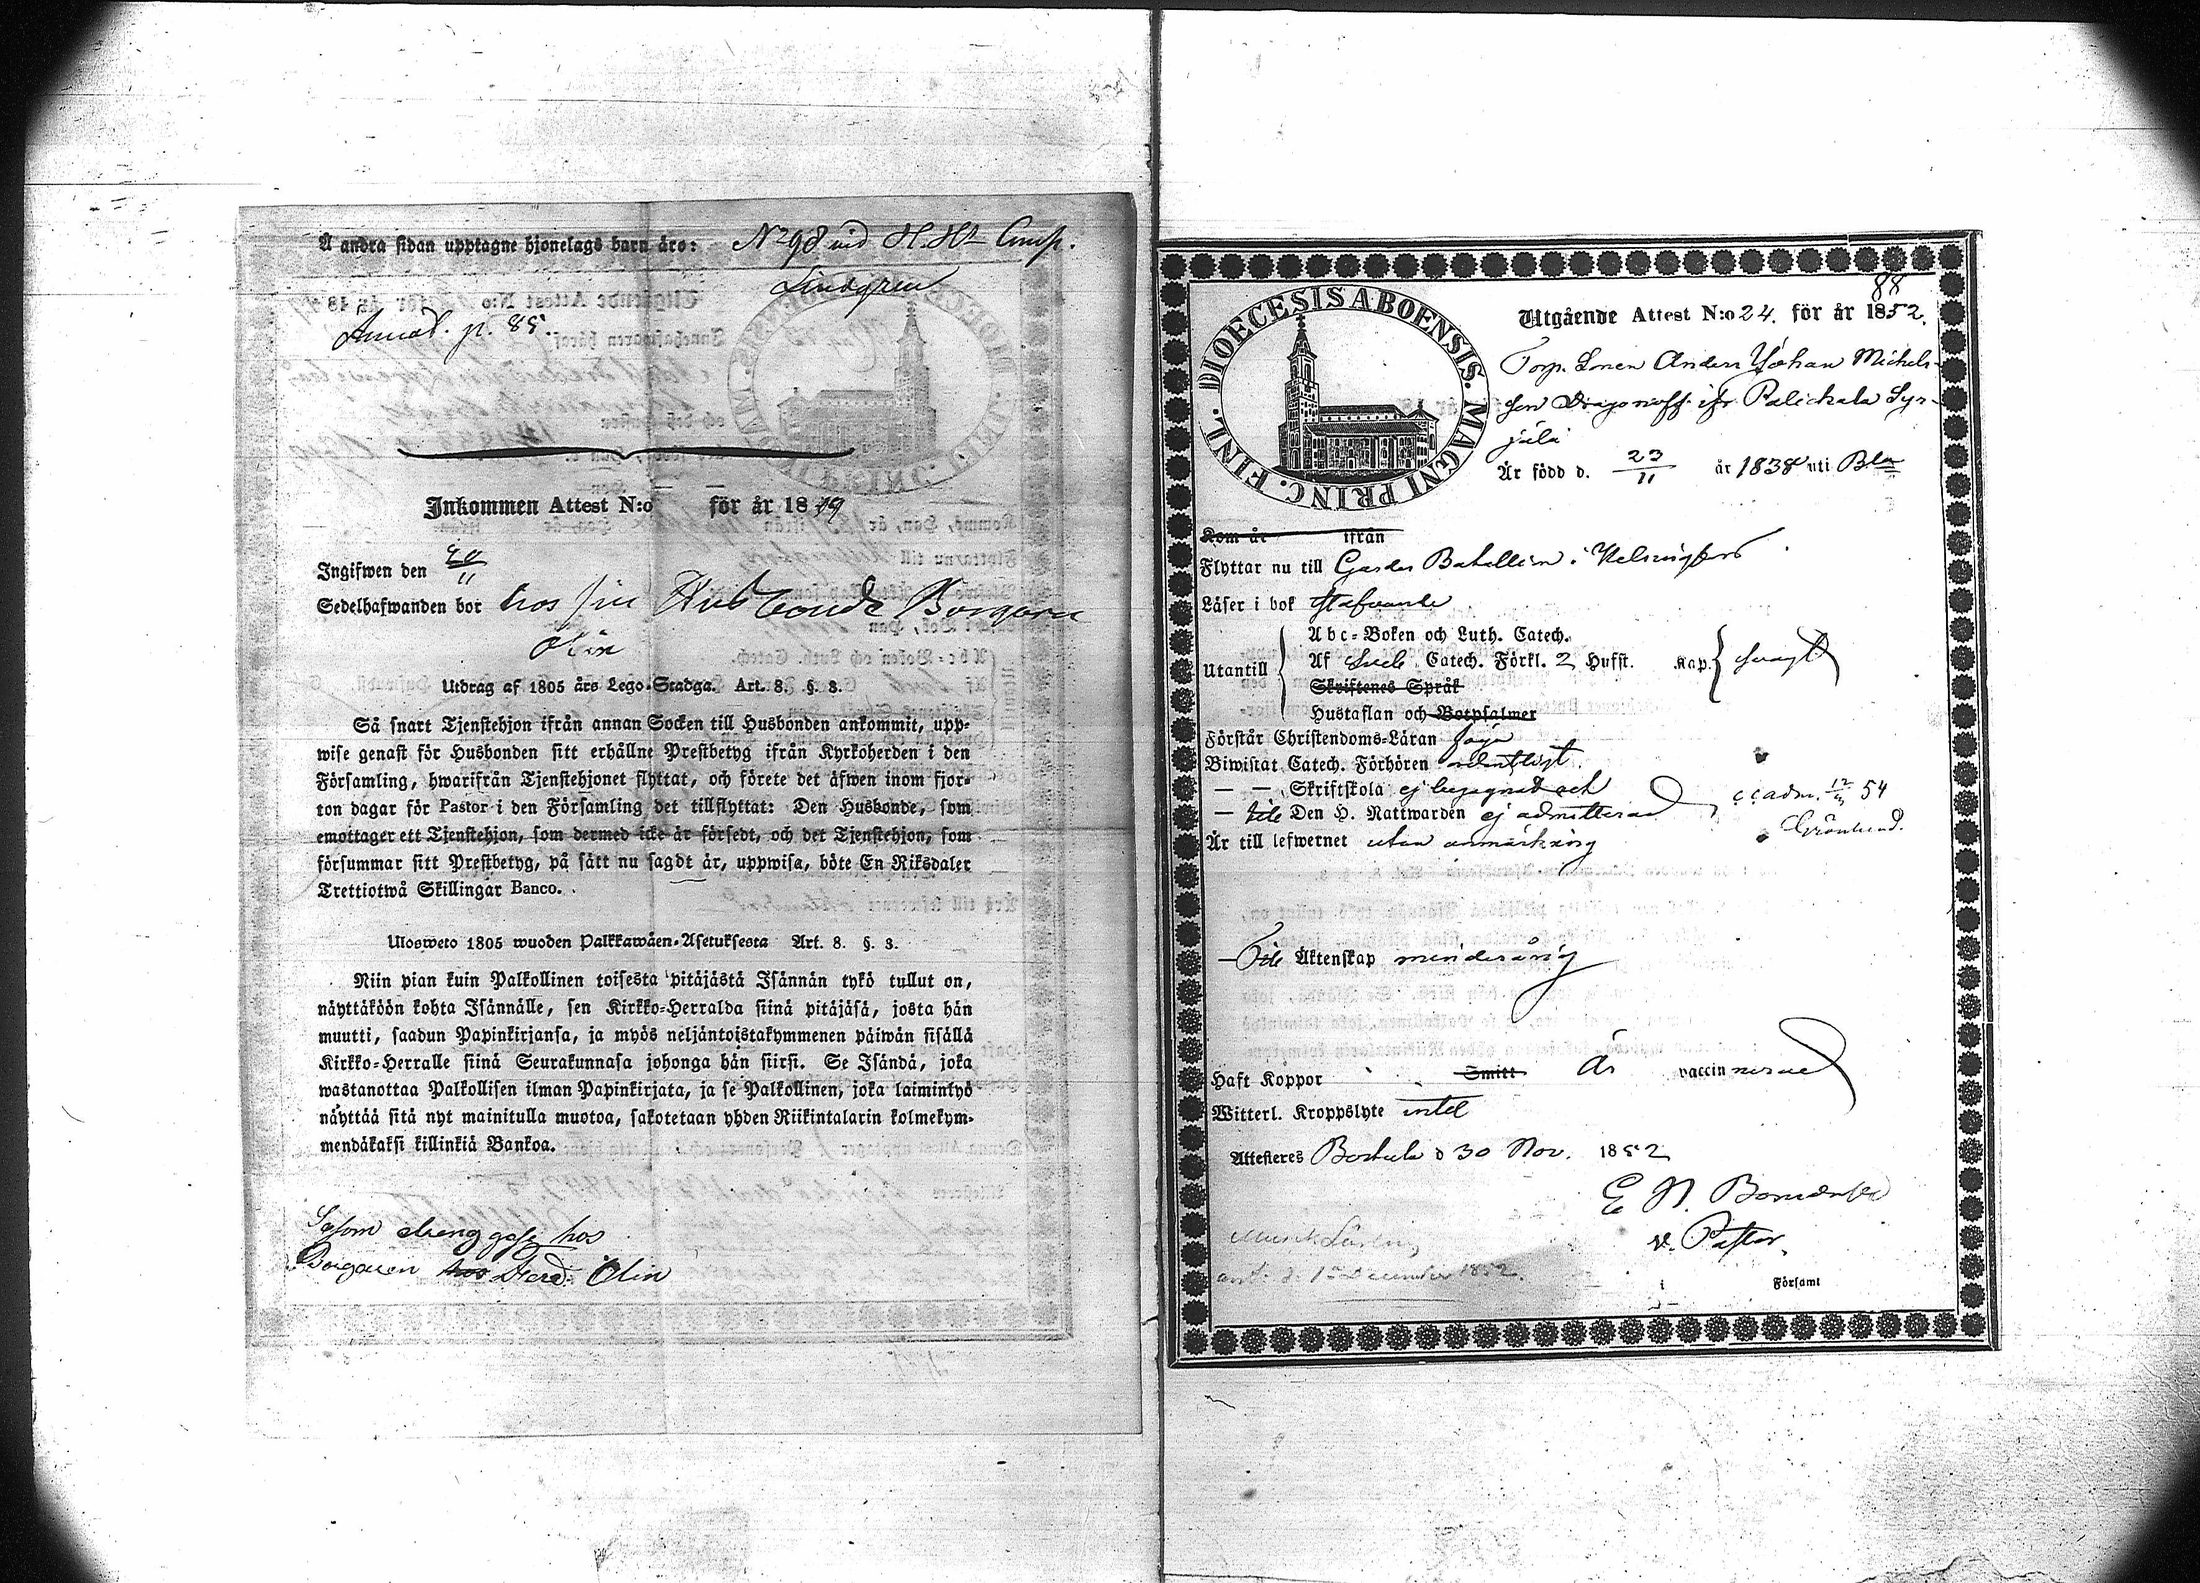 Å andra sidan upptagne hjonelags barn äro: N:o 98 vid
Lindgren
Anmäl. p. 85.
Inkommen Attest N:o för år 1849
Ingifwen den 20/11
Sedelhafwanden bor hos sin Husbonde Borgaren
Olin
Utdrag af 1805 års Lego-Stadga. Art. 8. §. 3.
Så snart Tjenstehjon ifrån annan Socken till Husbonden ankommit, upp-
wise genast för Husbonden sitt erhållne Prestbetyg ifrån Kyrkoherden i den
Församling, hwarifrån Tjenstehjonet flyttat, och förete det äfwen inom fjor-
ton dagar för Pastor i den Församling det tillflyttat: Den Husbonde, som
emottager ett Tjenstehjon, som dermed icke är försedt, och det Tjenstehjon, som
försummar sitt Prestbetyg, på sätt nu sagdt är, uppwisa, böte En Riksdaler
Trettiotwå Skillingar Banco.
Ulosweto 1805 wuoden Palkkawäen-Asetuksesta Art. 8. §. 3.
Niin pian kuin Palkollinen toisesta pitäjästä Isännän tykö tullut on,
näyttäköön kohta Isännälle, sen Kirkko-Herralda siinä pitäjäsä, josta hän
muutti, saadun Papinkirjansa, ja myös neljäntoistakymmenen päiwän sisällä
Kirkko-Herralle siinä Seurakunnasa johonga hän siirsi. Se Isändä, joka
wastanottaa Palkollisen ilman Papinkirjata, ja se Palkollinen, joka laimintyö
näyttää sitä nyt mainitulla muotoa, sakotetaan yhden Riikintalarin kolmekym-
mendäkaksi killinkiä Bankoa.
Såsom drenggosse hos
Borgaren hos Ferd. Olin
88
DIOECESIS ABOENSIS. MAGNI PRINC. FINL.
Utgående Attest N:o 24. för år 1852.
Torp. Sonen Anders Johan Michels-
son Dragonoff ifr. Palickala Syr-
jälä
Är född d. 23/11 år 1838 uti Bla
Kom år ifrån
Flyttar nu till Gardes Bataillon i Helsingfors.
Läser i bok stafvande
Utantill
Abc-Boken och Luth. Catech.
Af Sveb. Catech. Förkl. 2 Hufst. Kap. svagt
Skriftenes Språk
Hustaflan och Botpsalmer
Förstår Christendoms-Läran föga
Biwistat Catech. Förhören ordentligt.
— — Skriftskola ej begagnat och
— till Den H. Nattwarden ej admitterad, adm. 54
Grönlund.
Är till lefwernet utan anmärkning
— Till Äktenskap minderårig
Haft Koppor Smitt Är vaccinerad
Witterl. Kroppslyte intet
Attesteres d 30 Nov. 1852
E N
v. Pastor.
ank. d. 1 December 1852.
i Församl